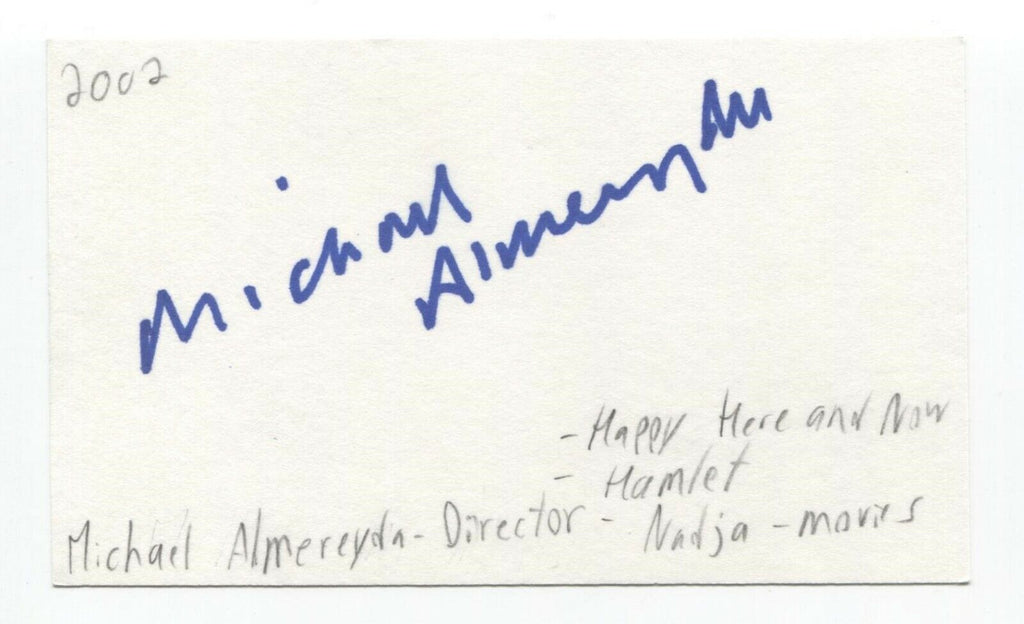 2002
Michael
Almereyda
- Happy Here and Now
- Hamlet
Michael Almereyda - Director - Nadja - movies